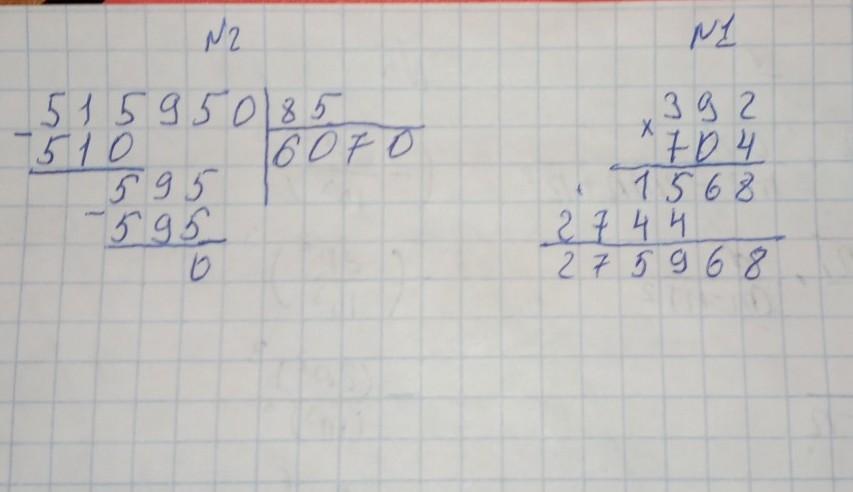 №2
515950 | 85
- 510 | 6070
595
- 595
0
№1
392
× 704
1568
2744
275968